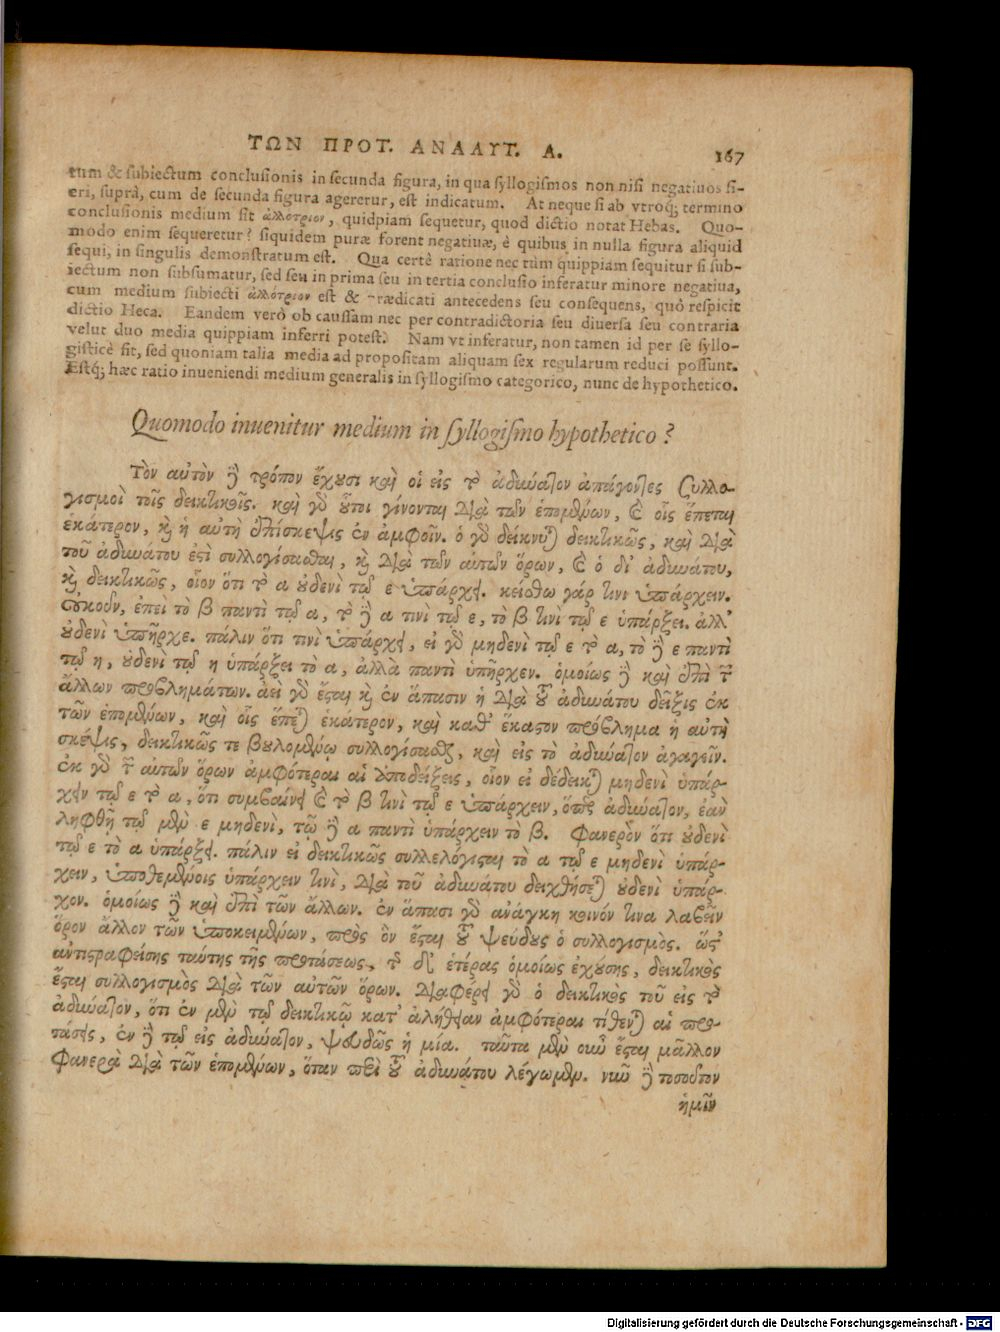 ΤΩΝ ΠΡΟΤ. ΑΝΑΛΥΤ. Α. 167
tum & subiectum conclusionis in secunda figura, in qua syllogismos non nisi negatiuos fi-
eri, suprà, cum de secunda figura ageretur, est indicatum. At neque si ab vtroq; termino
conclusionis medium sit ἀλλότριον, quidpiam sequetur, quod dictio notat Hebas. Quo-
modo enim sequeretur? siquidem puræ forent negatiuæ, è quibus in nulla figura aliquid
sequi, in singulis demonstratum est. Qua certè ratione nec tùm quippiam sequitur si sub-
iectum non subsumatur, sed seu in prima seu in tertia conclusio inferatur minore negatiua,
cum medium subiecti ἀλλότριον est & rædicati antecedens seu consequens, quò respicit
dictio Heca. Eandem verò ob caussam nec per contradictoria seu diuersa seu contraria
velut duo media quippiam inferri potest. Nam vt inferatur, non tamen id per se syllo-
gisticè fit, sed quoniam talia media ad propositam aliquam sex regularum reduci possunt.
Estq; hæc ratio inueniendi medium generalis in syllogismo categorico, nunc de hypothetico.
Quomodo inuenitur medium in syllogismo hypothetico?
Τὸν αὐτὸν δὲ τρόπον ἔχουσι καὶ οἱ εἰς τὸ ἀδύνατον ἀπάγοντες συλλο-
γισμοὶ τοῖς δεικτικοῖς. καὶ γὰρ οὗτοι γίνονται διὰ τῶν ἑπομένων, καὶ οἷς ἕπεται
ἑκάτερον, καὶ ἡ αὐτὴ ἐπίσκεψις ἐν ἀμφοῖν. ὁ γὰρ δείκνυται δεικτικῶς, καὶ διὰ
τοῦ ἀδυνάτου ἐστὶ συλλογίσασθαι, καὶ διὰ τῶν αὐτῶν ὅρων, καὶ ὁ δι' ἀδυνάτου,
καὶ δεικτικῶς, οἷον ὅτι τὸ α οὐδενὶ τῷ ε ὑπάρχει. κείσθω γάρ τινι ὑπάρχειν.
οὐκοῦν, ἐπεὶ τὸ β παντὶ τῷ α, τὸ δὲ α τινὶ τῷ ε, τὸ β τινὶ τῷ ε ὑπάρξει. ἀλλ'
οὐδενὶ ὑπῆρχε. πάλιν ὅτι τινὶ ὑπάρχει, εἰ γὰρ μηδενὶ τῷ ε τὸ α, τὸ δὲ ε παντὶ
τῷ η, οὐδενὶ τῷ η ὑπάρξει τὸ α, ἀλλὰ παντὶ ὑπῆρχεν. ὁμοίως δὲ καὶ ἐπὶ τῶν
ἄλλων προβλημάτων. ἀεὶ γὰρ ἔσται καὶ ἐν ἅπασιν ἡ διὰ τοῦ ἀδυνάτου δεῖξις ἐκ
τῶν ἑπομένων, καὶ οἷς ἕπεται ἑκάτερον, καὶ καθ' ἕκαστον πρόβλημα ἡ αὐτὴ
σκέψις, δεικτικῶς τε βουλομένῳ συλλογίσασθαι, καὶ εἰς τὸ ἀδύνατον ἀγαγεῖν.
ἐκ γὰρ τῶν αὐτῶν ὅρων ἀμφότεραι αἱ ἀποδείξεις, οἷον εἰ δέδεικται μηδενὶ ὑπάρ-
χειν τῷ ε τὸ α, ὅτι συμβαίνει καὶ τὸ β τινὶ τῷ ε ὑπάρχειν, ὅπερ ἀδύνατον, ἐὰν
ληφθῇ τῷ μὲν ε μηδενὶ, τῷ δὲ α παντὶ ὑπάρχειν τὸ β. Φανερὸν ὅτι οὐδενὶ
τῷ ε τὸ α ὑπάρξει. πάλιν εἰ δεικτικῶς συλλελόγισται τὸ α τῷ ε μηδενὶ ὑπάρ-
χειν, ὑποθεμένοις ὑπάρχειν τινὶ, διὰ τοῦ ἀδυνάτου δειχθήσεται οὐδενὶ ὑπάρ-
χον. ὁμοίως δὲ καὶ ἐπὶ τῶν ἄλλων. ἐν ἅπασι γὰρ ἀνάγκη κοινόν τινα λαβεῖν
ὅρον ἄλλον τῶν ὑποκειμένων, πρὸς ὃν ἔσται τοῦ ψεύδους ὁ συλλογισμός. ὥστ'
ἀντιστραφείσης ταύτης τῆς προτάσεως, τῆς δ' ἑτέρας ὁμοίως ἐχούσης, δεικτικὸς
ἔσται συλλογισμὸς διὰ τῶν αὐτῶν ὅρων. διαφέρει γὰρ ὁ δεικτικὸς τοῦ εἰς τὸ
ἀδύνατον, ὅτι ἐν μὲν τῷ δεικτικῷ κατ' ἀλήθειαν ἀμφότεραι τίθενται αἱ προ-
τάσεις, ἐν δὲ τῷ εἰς ἀδύνατον, ψευδῶς ἡ μία. ταῦτα μὲν οὖν ἔσται μᾶλλον
Φανερὰ διὰ τῶν ἑπομένων, ὅταν περὶ τοῦ ἀδυνάτου λέγωμεν. νῦν δὲ τοσοῦτον
ἡμῖν
Digitalisierung gefördert durch die Deutsche Forschungsgemeinschaft - DFG